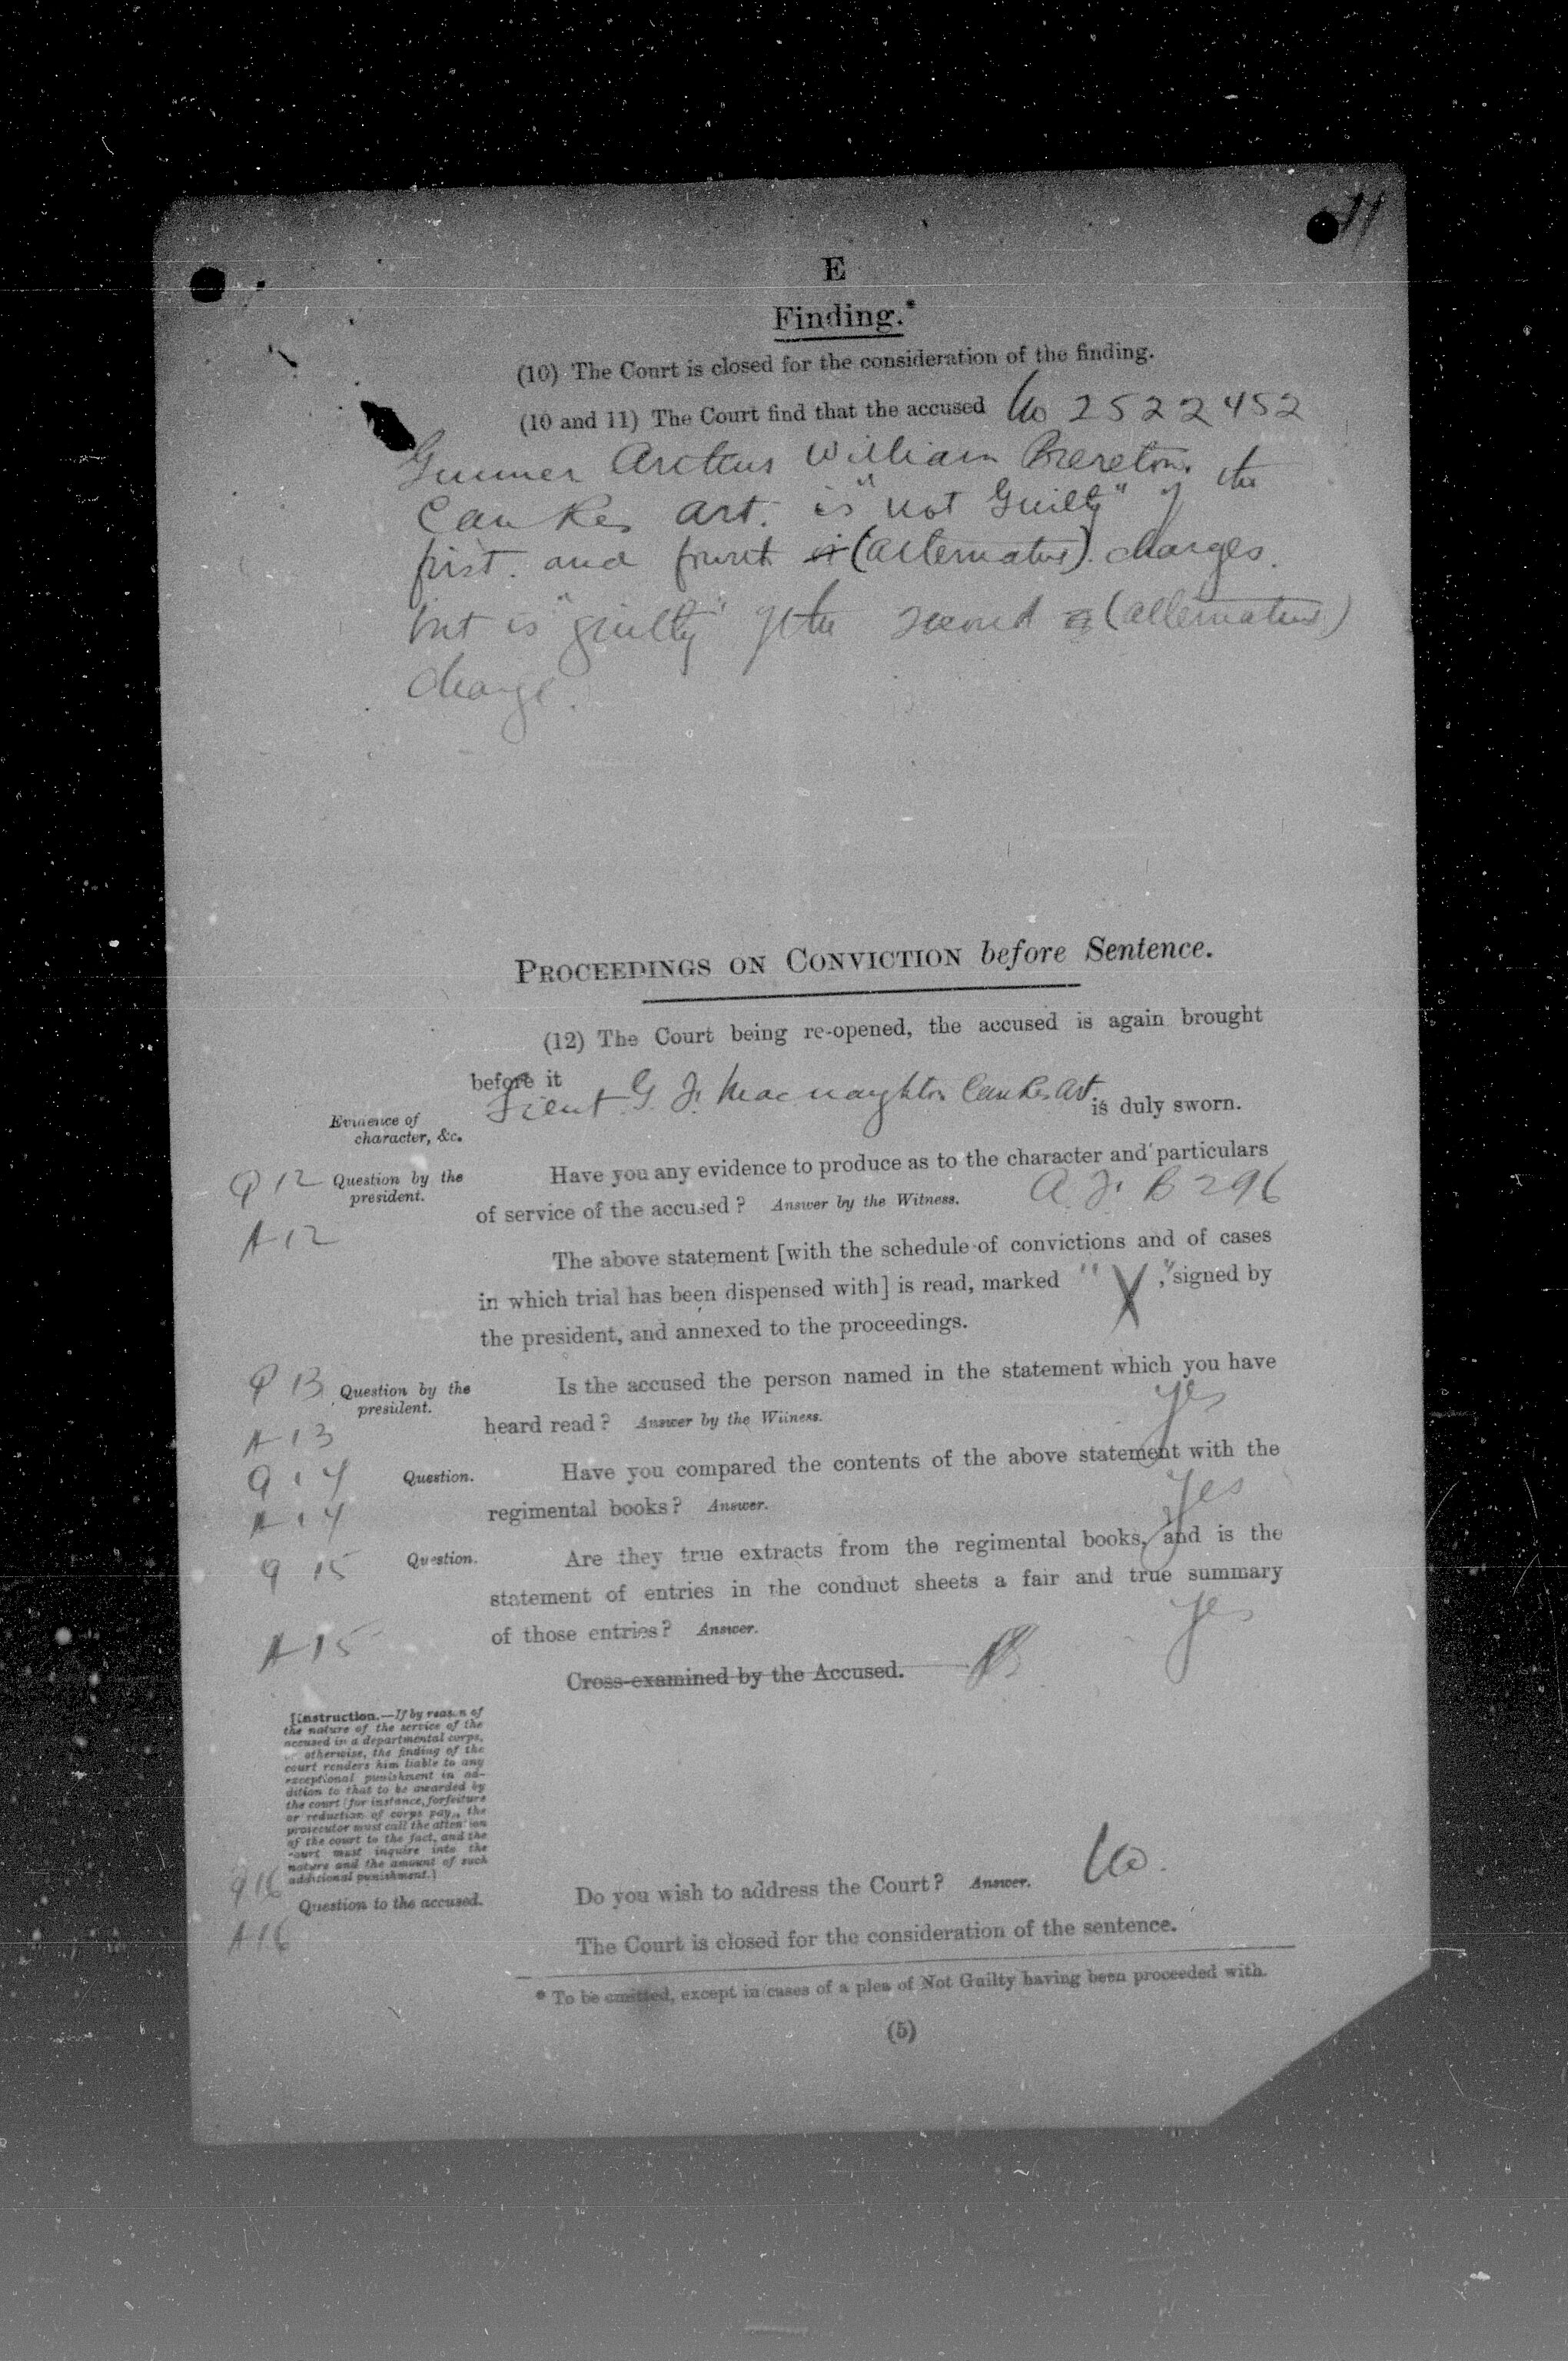 11
E
Finding.*
(10) The Court is closed for the consideration of the finding.
(10 and 11) The Court find that the accused No 2522452
Gunner William Brereton. the
Can Res Art. is "not Guilty" of the
first. and fourth (alternative). charges.
but is "guilty" of the second (alternative)
charge.
PROCEEDINGS ON CONVICTION before Sentence.
(12) The Court being re-opened, the accused is again brought
before it
Lieut. G. F. Macnaughton Can Res Art. is duly sworn.
Evidence of
character, &c.
Q 12 Question by the
president.
Have you any evidence to produce as to the character and particulars
of service of the accused? Answer by the Witness. A. F. B 296
A 12
The above statement [with the schedule of convictions and of cases
in which trial has been dispensed with] is read, marked "X," signed by
the president, and annexed to the proceedings.
Q 13 Question by the
president.
Is the accused the person named in the statement which you have
heard read? Answer by the Witness. Yes
A 13
Q 14 Question. Have you compared the contents of the above statement with the
A 14 regimental books? Answer. Yes
Q 15 Question. Are they true extracts from the regimental books, and is the
statement of entries in the conduct sheets a fair and true summary
A 15 of those entries? Answer. Yes
Cross-examined by the Accused.
[Instruction.—If by reason of
the nature of the service of the
accused in a departmental corps,
or otherwise, the finding of the
court renders him liable to any
exceptional punishment in ad-
dition to that to be awarded by
the court (for instance, forfeiture
or reduction of corps pay), the
prosecutor must call the attention
of the court to the fact, and the
court must inquire into the
nature and the amount of such
additional punishment.]
Q 16 Question to the accused. Do you wish to address the Court? Answer. No.
A 16
The Court is closed for the consideration of the sentence.
* To be omitted, except in cases of a plea of Not Guilty having been proceeded with.
(5)